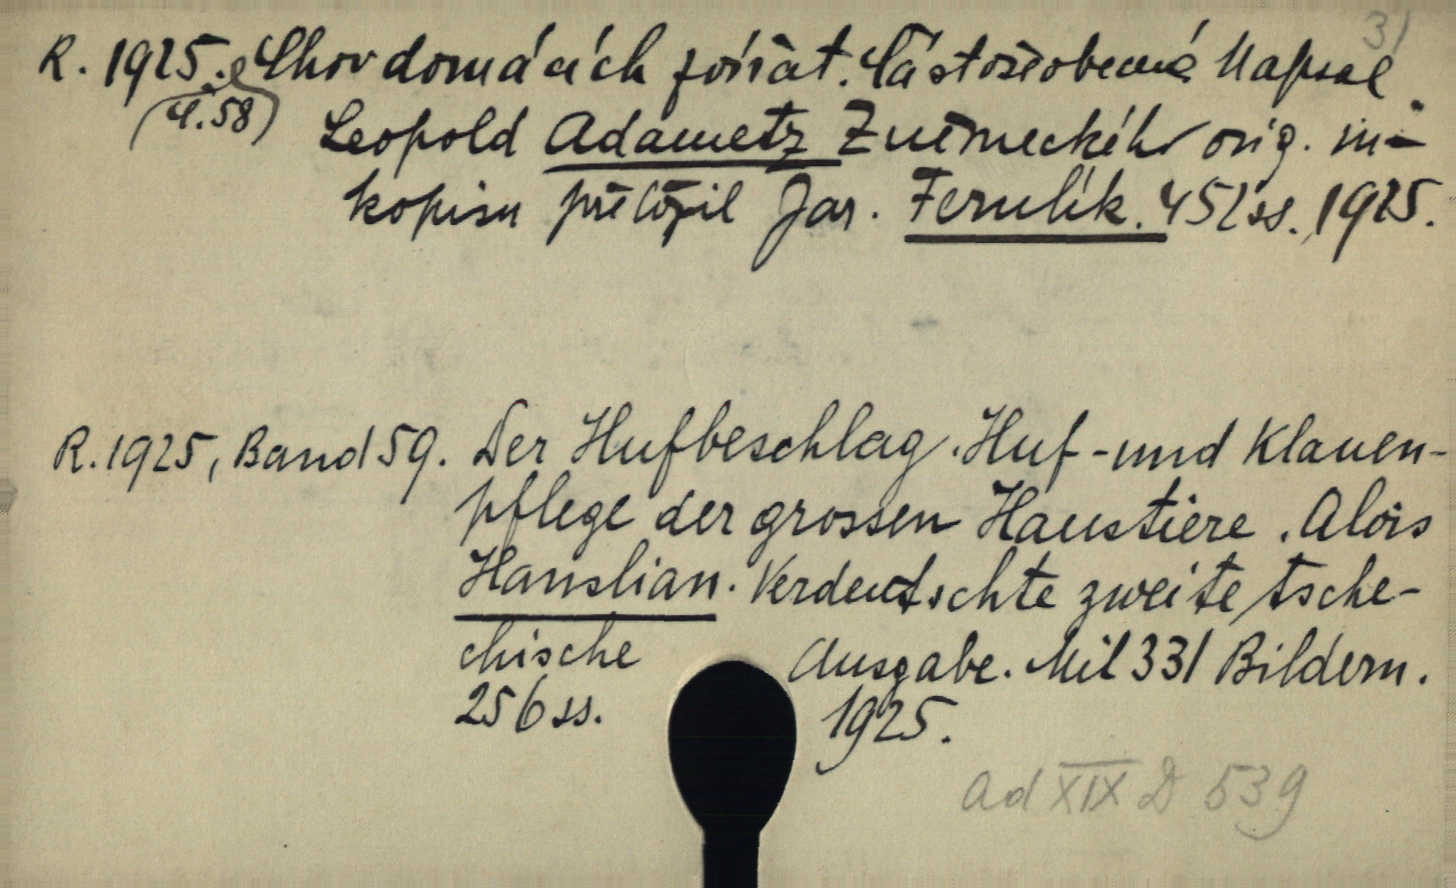 31
R. 1925. Chov domácích zvířat. Část všeobecná Napsal
(č. 58) Leopold Adametz Z německého orig. ru-
kopisu přeložil Jar. Ferulík. 452 ss. 1925.
R. 1925, Band 59. Der Hufbeschlag. Huf- und Klauen-
pflege der grossen Haustiere. Alois
Hanslian. Verdeutschte zweite tsche-
chische Ausgabe. Mit 331 Bildern.
256 ss. 1925.
ad XIX D 539